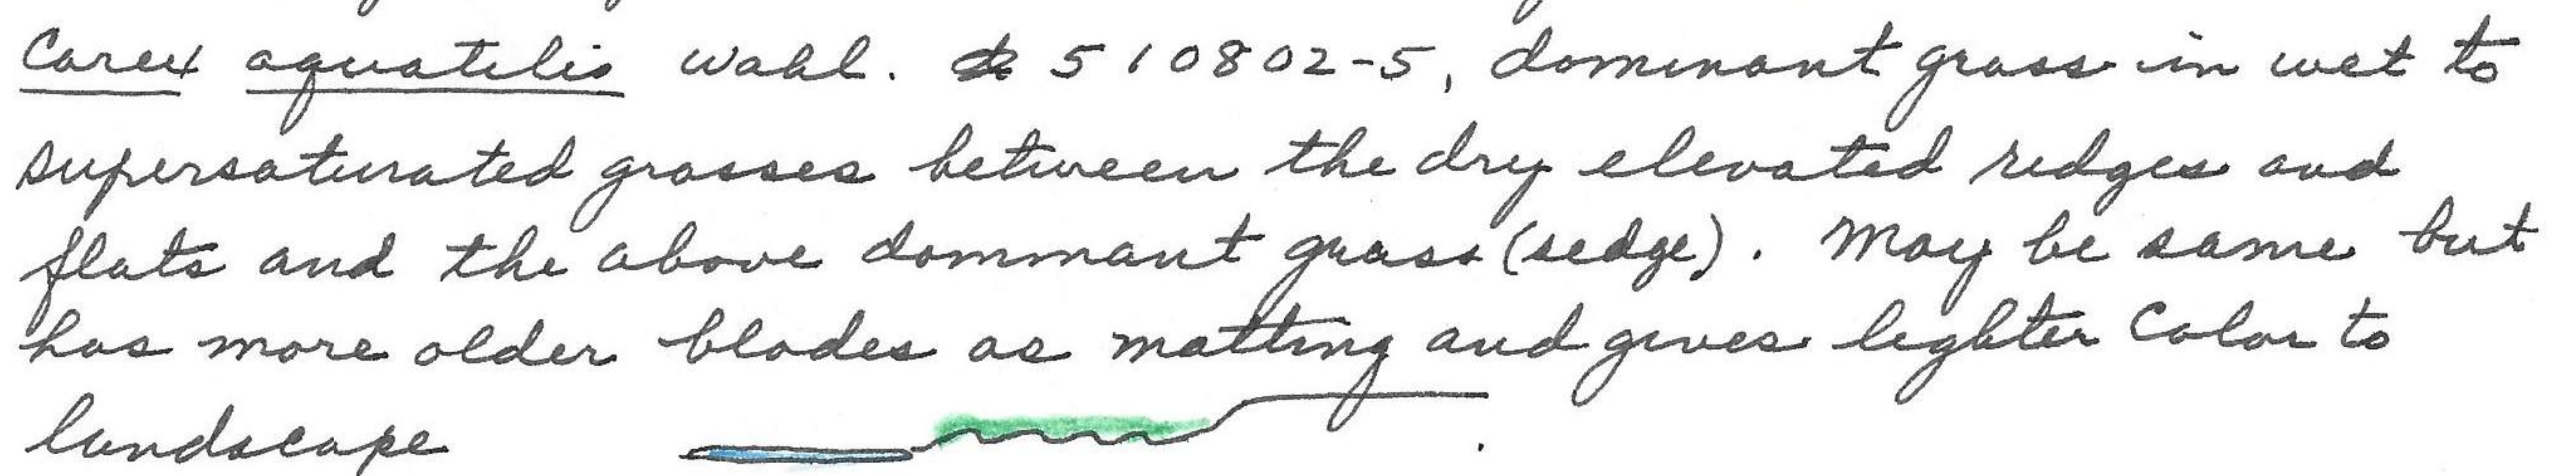 Carex aquatilis Wahl. 510802-5, dominant grass in wet to
supersaturated grasses between the dry elevated ridges and
flats and the above dominant grass (sedge). May be same but
has more older blades as matting and gives lighter color to
landscape .